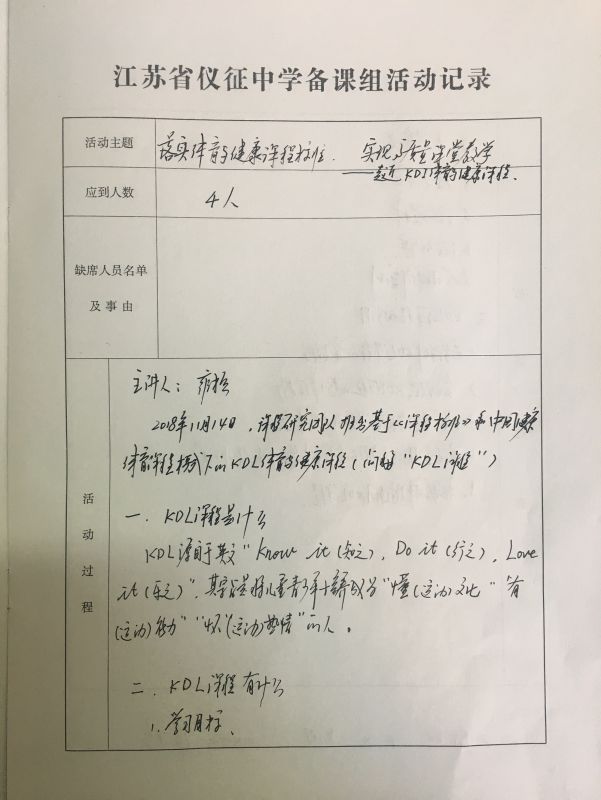 江苏省仪征中学备课组活动记录
活动主题
落实体育与健康课程标准. 实现高质量课堂教学
——走近KDL体育与健康课程.
应到人数
4人
缺席人员名单
及事由
活动过程
主讲人:
2018年11月14日,课程研究团队推出基于《课程标准》和中国健康
体育课程模式下的KDL体育与健康课程(简称"KDL课程")
一. KDL课程是什么
KDL源于英文"Know it(知之), Do it(行之), Love
it(乐之)", 其宗旨是将儿童青少年培养成为"懂(运动)文化" "有
(运动)能力" "怀(运动)热情"的人。
二. KDL课程有什么
1. 学习目标.